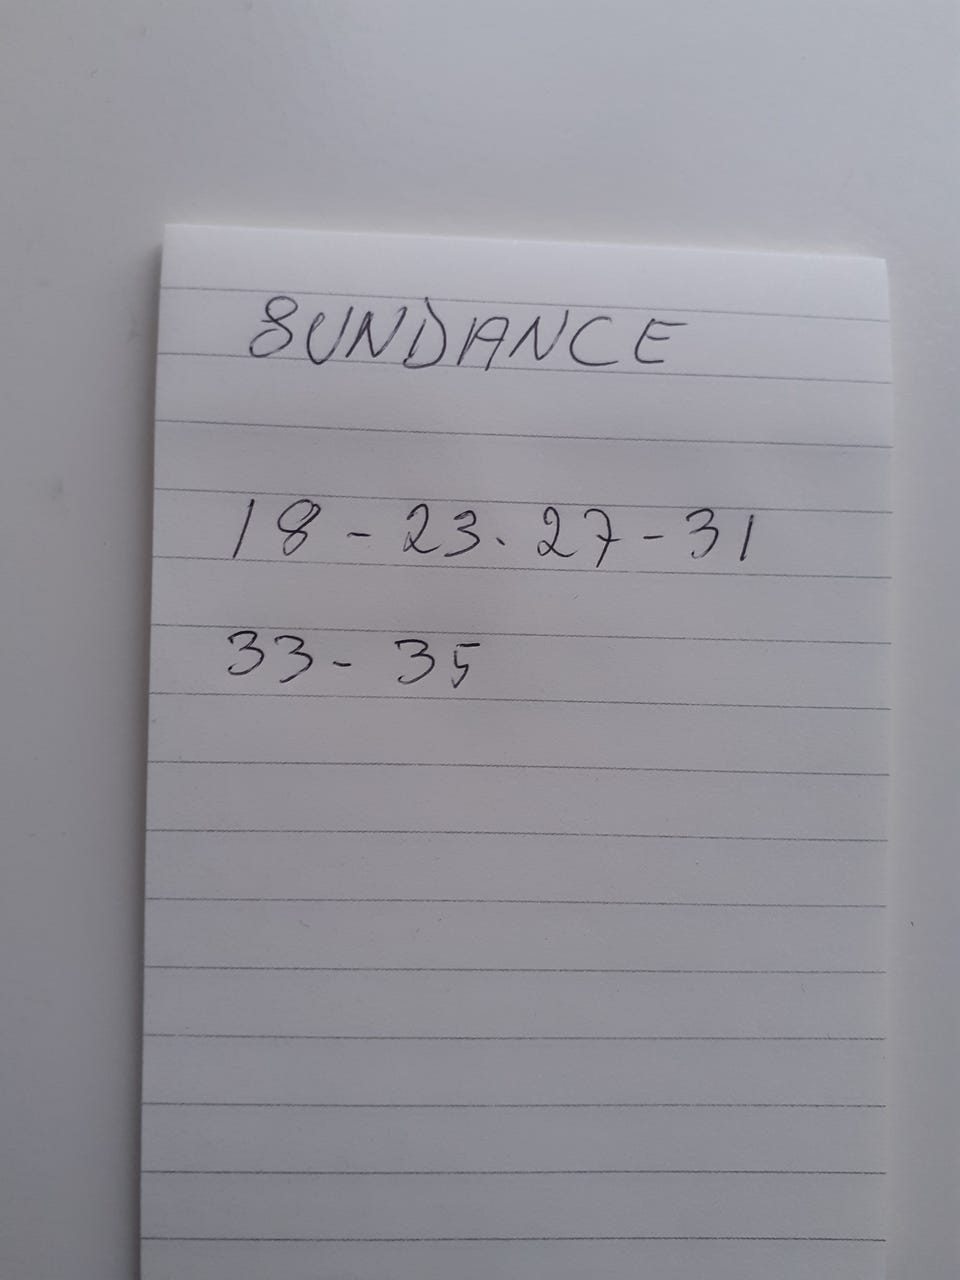 SUNDANCE
18 - 23. 27 - 31
33 - 35